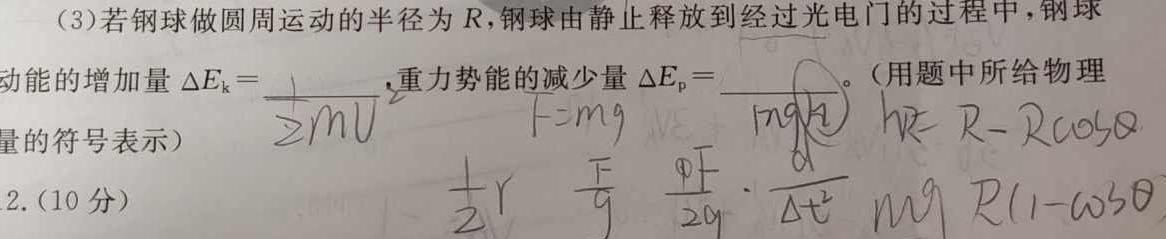 (3)若钢球做圆周运动的半径为 R,钢球由静止释放到经过光电门的过程中,钢球
动能的增加量 ΔEₖ= ½mv² ,重力势能的减少量 ΔEₚ= mgh 。(用题中所给物理
F=mg h= R-Rcosθ
量的符号表示)
2.(10 分)
1/2 r F/g F/2g · d/Δt² mg R(1-cosθ)